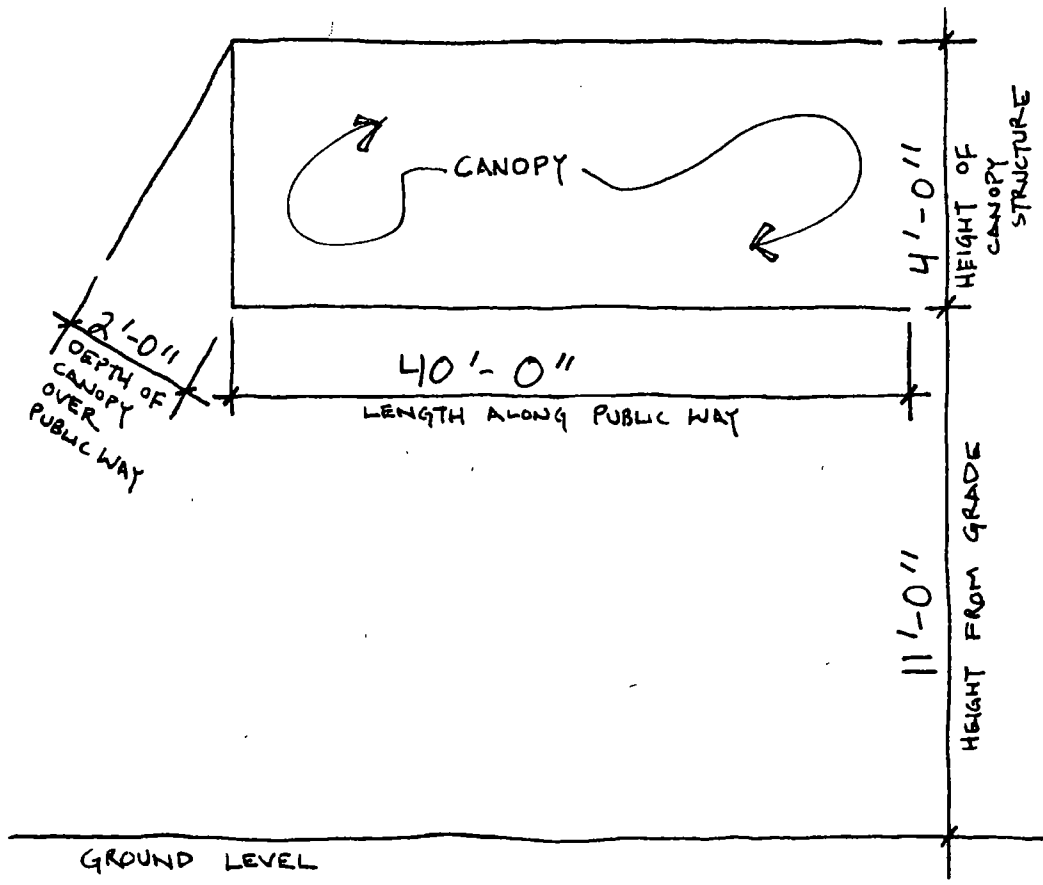 CANOPY
4'-0"
HEIGHT OF
CANOPY
STRUCTURE
2'-0"
DEPTH OF
CANOPY
OVER
PUBLIC WAY
40'-0"
LENGTH ALONG PUBLIC WAY
11'-0"
HEIGHT FROM GRADE
GROUND LEVEL